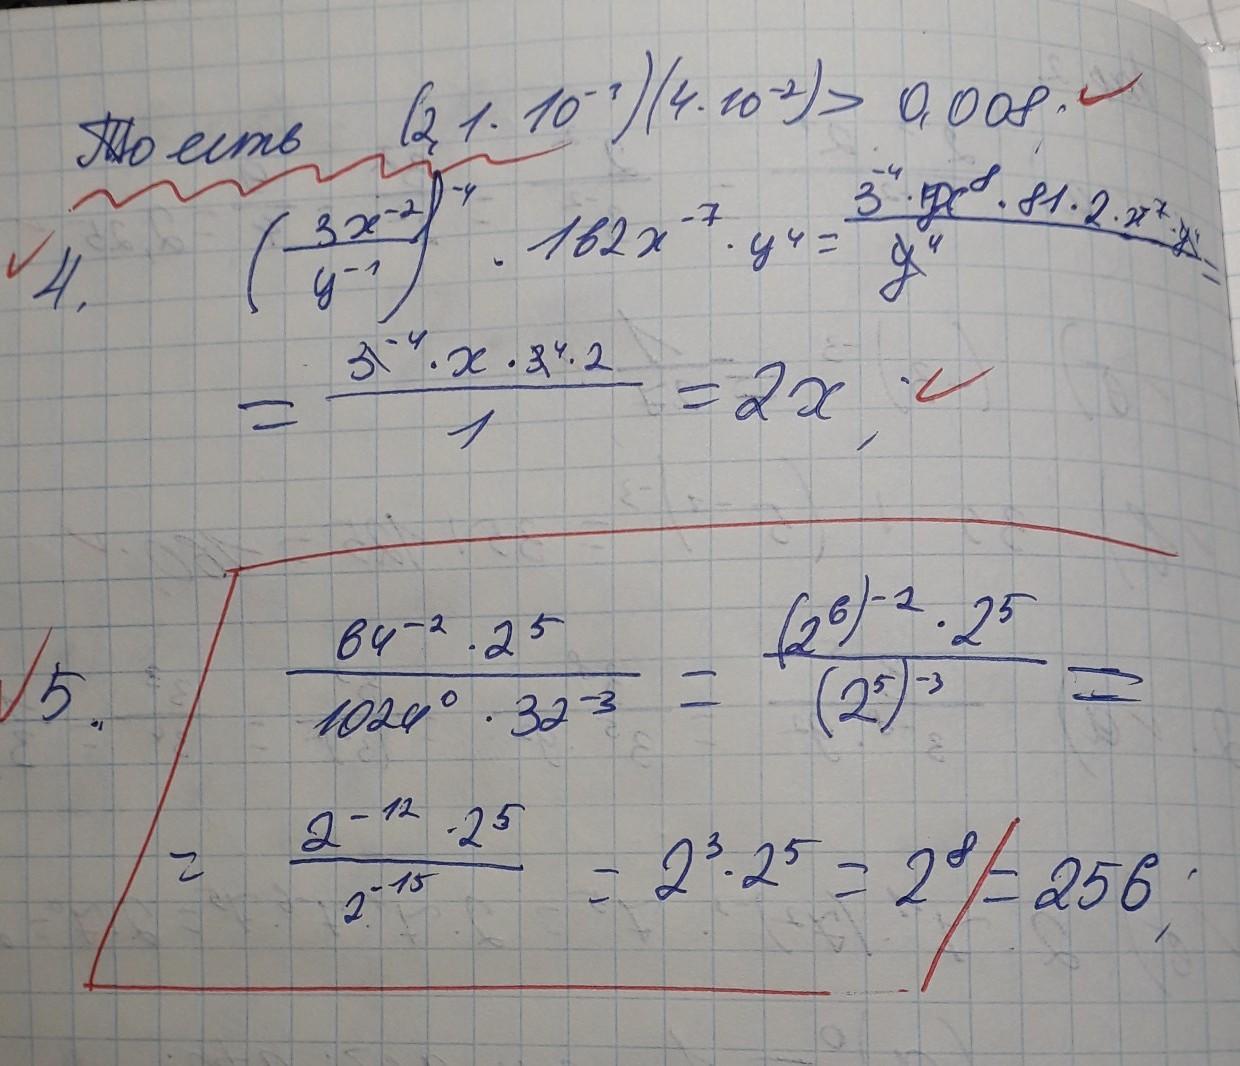 То есть (2,1·10⁻¹)(4·10⁻²) > 0,008;
4. (3x⁻²/y⁻¹)⁻⁴ · 162x⁻⁷ · y⁴ = (3⁻⁴ · x⁸ · 81 · 2 · x⁻⁷ · y⁴)/y⁴ =
= (3⁻⁴ · x · 3⁴ · 2)/1 = 2x,
5. (64⁻² · 2⁵)/(1024⁰ · 32⁻³) = ((2⁶)⁻² · 2⁵)/(2⁵)⁻³ =
= (2⁻¹² · 2⁵)/2⁻¹⁵ = 2³ · 2⁵ = 2⁸ = 256;